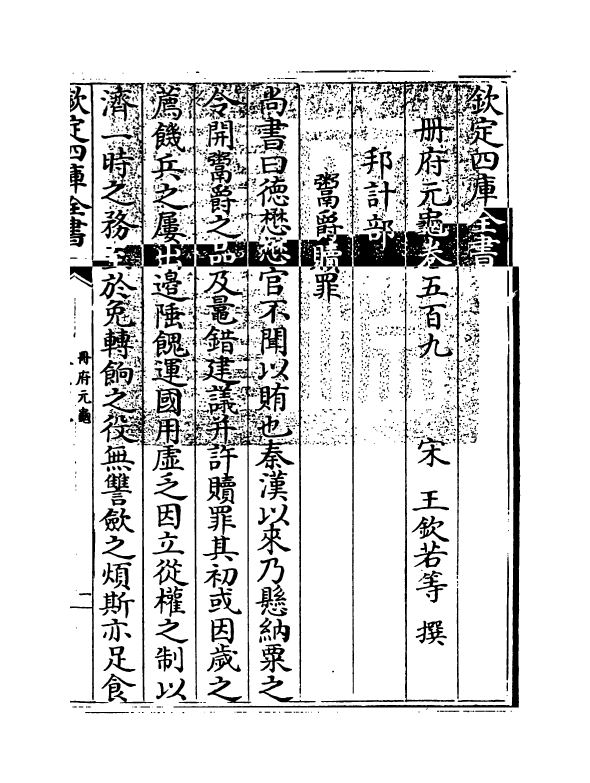 欽定四庫全書
冊府元龜卷五百九
宋 王欽若等 撰
邦計部
鬻爵贖罪
尚書曰德懋懋官不聞以賄也秦漢以來乃懸納粟之
令開鬻爵之品及鼂錯建議并許贖罪其初或因歲之
薦饑兵之屢出邊陲餽運國用虛乏因立從權之制以
濟一時之務至於免轉餉之役無讐歛之煩斯亦足食
欽定四庫全書
冊府元龜
一